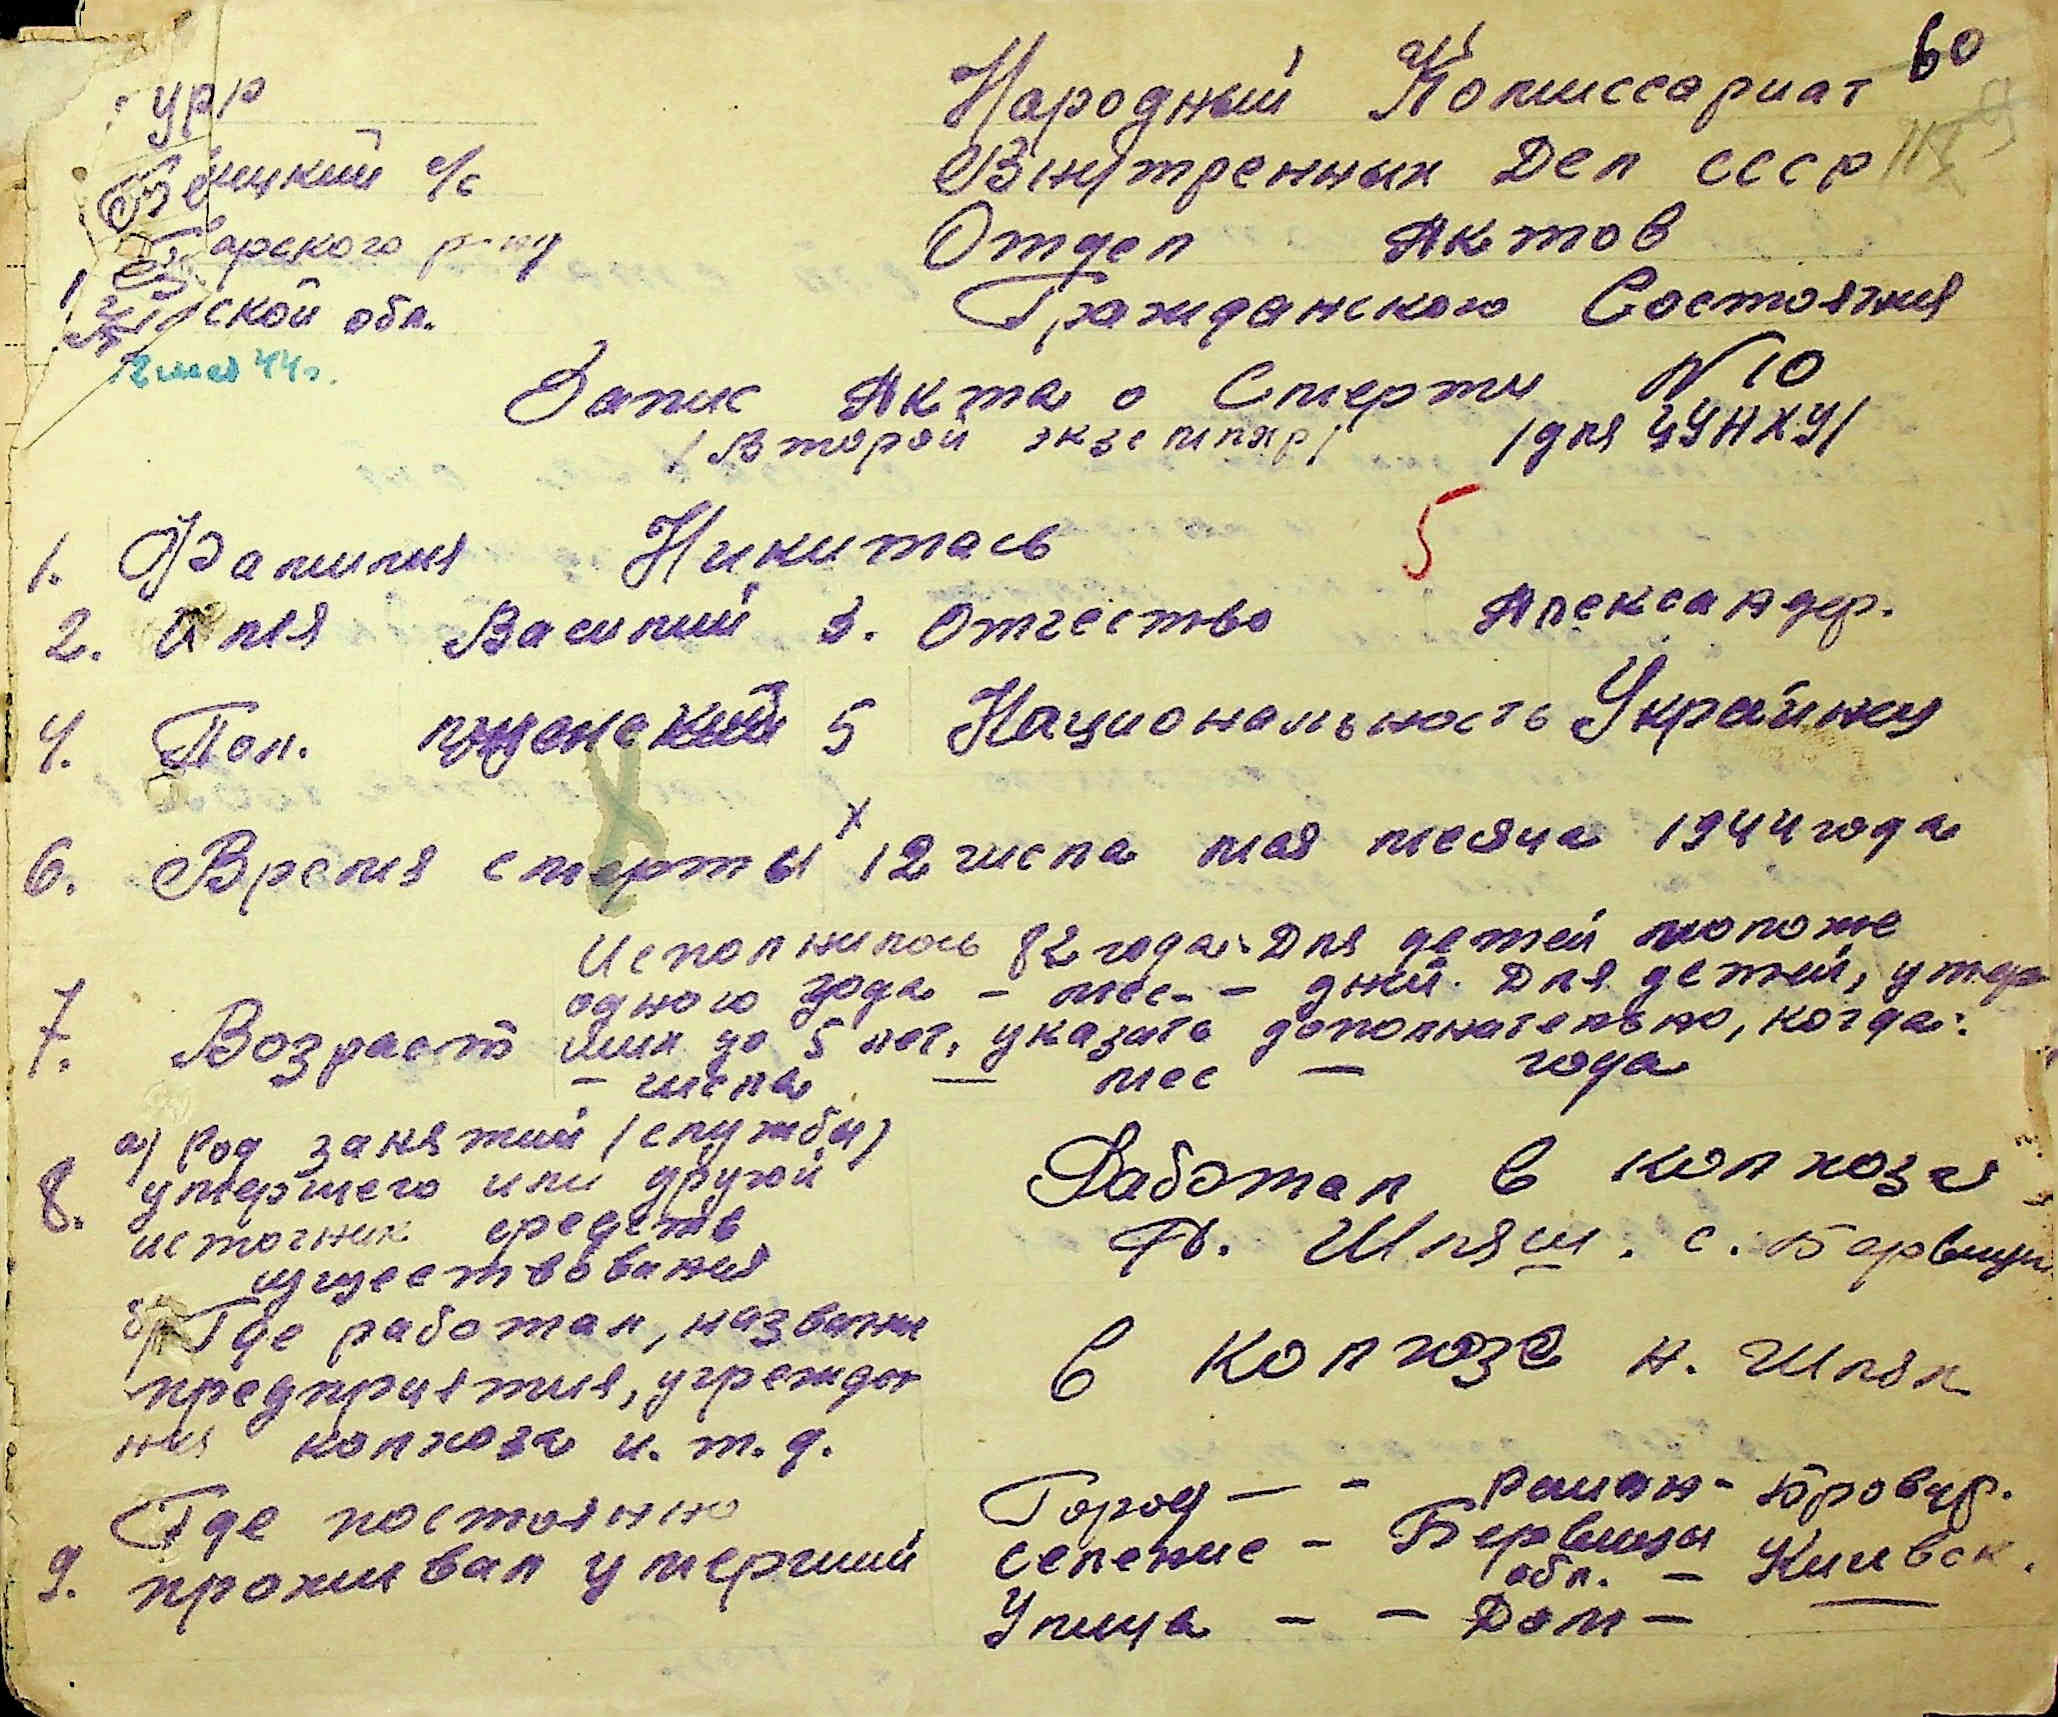 УРР
Народный Комиссариат
60
ицкий с/с
Внутренных Дел СССР
арского р-ну
Отдел Актов
ской обл.
Гражданского Состояния
44г.
Запис Акта о Смерти N 10
/Второй экземпляр/ /для ЦУНХУ/
5
1. Фамилия Никитась
2. Имя Василий 3. Отчество Александер.
4. Пол. 5 Национальность Украйнец
6. Время смерты х 12 числа мая месяца 1944 года
Исполнилось 82 года. Для детей моложе
одного года – мес. – дней. Для детей, умер
7. Возраст ших до 5 лет, указать дополнательно, когда:
– числа — мес — года
а) Род занятий (службы)
8. умершего или другой
источник средств
существования
Работал в колхозе
с. Бервици
б) Где работал, название
предприятия, учрежде
ния колхоза и. т. д.
в колхозе
Где постоянно
9. проживал умерший
Город — – Раион – Бровар.
селение – Бервицы
обл. – Киивск.
Улица – – Дом –